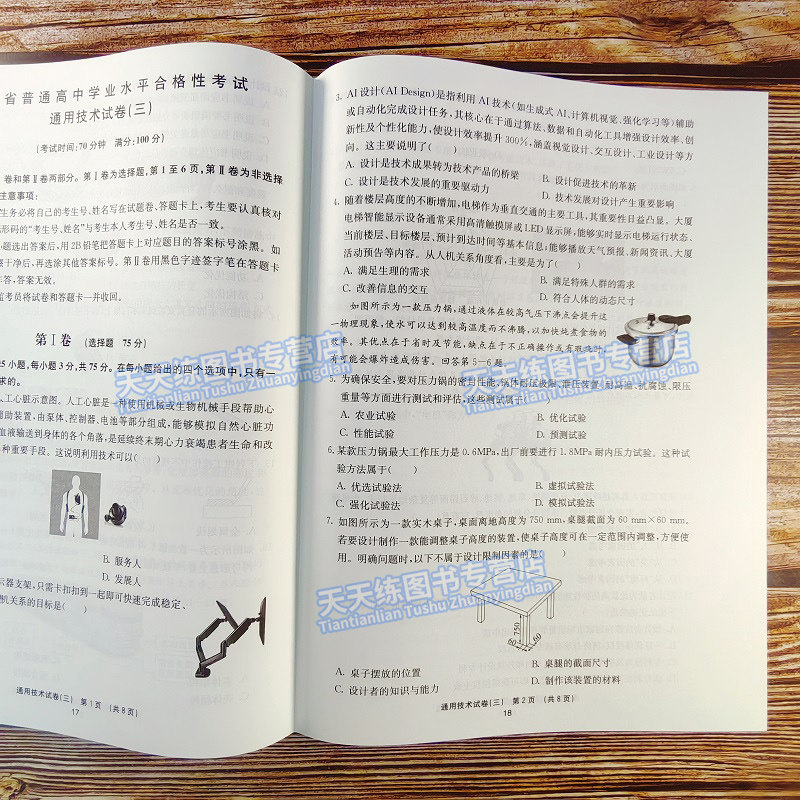 省普通高中学业水平合格性考试
通用技术试卷(三)
(考试时间:70分钟 满分:100分)
卷和第Ⅱ卷两部分。第Ⅰ卷为选择题,第1至6页,第Ⅱ卷为非选择
注意事项:
生务必将自己的考生号、姓名写在试卷、答题卡上,考生要认真核对
形码的“考生号、姓名”与考生本人考生号、姓名是否一致。
题选出答案后,用2B铅笔把答题卡上对应题目的答案标号涂黑。如
擦干净后,再选涂其他答案标号。第Ⅱ卷用黑色字迹签字笔在答题卡
作答,答案无效。
监考员将试卷和答题卡一并收回。
第Ⅰ卷 (选择题 75分)
25小题,每小题3分,共75分。在每小题给出的四个选项中,只有一
求的。
人工心脏示意图。人工心脏是一种使用机械或生物机械手段帮助心
辅助装置,由泵体、控制器、电池等部分组成,能够模拟自然心脏功
血液输送到身体的各个角落,是延续终末期心力衰竭患者生命和改
一种重要手段。这说明利用技术可以( )
B. 服务人
D. 发展人
示器支架,只需卡扣扣到一起即可快速完成稳定、
机关系的目标是( )
通用技术试卷(三) 第1页 (共8页)
17
3. AI设计(AI Design)是指利用AI技术(如生成式AI、计算机视觉、强化学习等)辅助
或自动化完成设计任务,其核心在于通过算法、数据和自动化工具增强设计效率、创
新性及个性化能力,使设计效率提升300%,涵盖视觉设计、交互设计、工业设计等方
向。这主要说明了( )
A. 设计是技术成果转为技术产品的桥梁 B. 设计促进技术的革新
C. 设计是技术发展的重要驱动力 D. 技术发展对设计产生重要影响
4. 随着楼层高度的不断增加,电梯作为垂直交通的主要工具,其重要性日益凸显。大厦
电梯智能显示设备通常采用高清触摸屏或LED显示屏,能够实时显示电梯运行状态、
当前楼层、目标楼层、预计到达时间等基本信息,能够播放天气预报、新闻资讯、大厦
活动预告等内容。从人机关系角度看,主要是为了( )
A. 满足生理的需求 B. 满足特殊人群的需求
C. 改善信息的交互 D. 符合人体的动态尺寸
如图所示为一款压力锅,通过液体在较高气压下沸点会提升这
一物理现象,使水可以达到较高温度而不沸腾,以加快炖煮食物的
效率。其优点在于省时及节能,缺点在于不正确操作或有瑕疵时,
有可能会爆炸造成伤害。回答第5-6题。
5. 为确保安全,要对压力锅的密封性能、锅体耐压极限、泄压装置、耐高温、抗腐蚀、限压
重量等方面进行测试和评估,这些测试属于( )
A. 农业试验 B. 优化试验
C. 性能试验 D. 预测试验
6. 某款压力锅最大工作压力是0.6MPa,出厂前要进行1.8MPa耐内压力试验。这种试
验方法属于( )
A. 优选试验法 B. 虚拟试验法
C. 强化试验法 D. 模拟试验法
7. 如图所示为一款实木桌子,桌面离地高度为750 mm,桌腿截面为60 mm×60 mm。
若要设计制作一款能调整桌子高度的装置,使桌子高度可在一定范围内调整,方便使
用。明确问题时,以下不属于设计限制因素的是( )
750
60
60
A. 桌子摆放的位置 B. 桌腿的截面尺寸
C. 设计者的知识与能力 D. 制作该装置的材料
通用技术试卷(三) 第2页 (共8页)
18
天天练图书专营店
Tiantianlian Tushu Zhuanyingdian
天天练图书专营店
Tiantianlian Tushu Zhuanyingdian
天天练图书专营店
Tiantianlian Tushu Zhuanyingdian
天天练图书专营店
Tiantianlian Tushu Zhuanyingdian